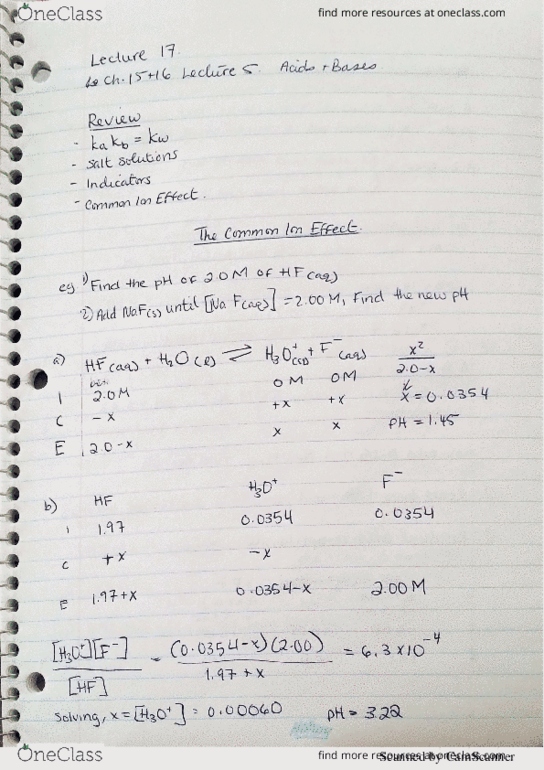 OneClass
find more resources at oneclass.com
Lecture 17.
Ch. 15+16 Lecture 5. Acids + Bases
Review
- kakb = kw
- Salt solutions
- Indicators
- Common Ion Effect.
The Common Ion Effect.
eg 1) Find the pH of 2.0M of HF(aq)
2) Add NaF(s) until [NaF(aq)] = 2.00 M, Find the new pH
a) HF(aq) + H2O(l) ⇌ H3O+(aq) + F-(aq) x²/2.0-x
I 2.0M 0M 0M x = 0.0354
C -x +x +x pH = 1.45
E 2.0-x x x
b) HF H3O+ F-
i 1.97 0.0354 0.0354
C +x -x
E 1.97+x 0.0354-x 2.00M
[H3O+][F-]/[HF] = (0.0354-x)(2.00)/1.97+x = 6.3x10⁻⁴
Solving, x = [H3O+] = 0.00060 pH = 3.22
OneClass
find more resources at oneclass.com
Scanned by CamScanner